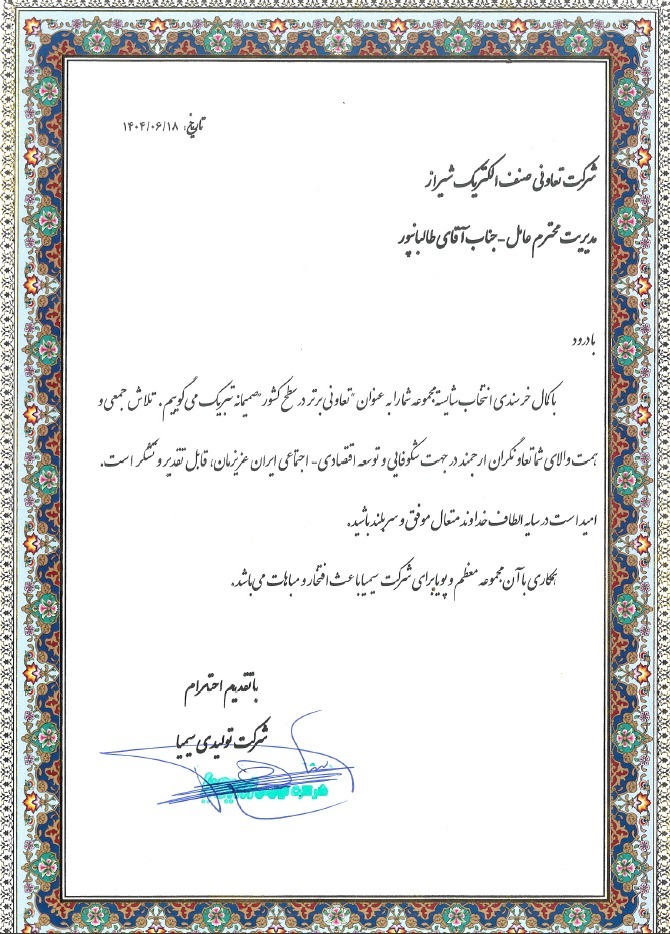 تاریخ: ۱۴۰۴/۰۶/۱۸
شرکت تعاونی صنف الکتریک شیراز
مدیریت محترم عامل - جناب آقای طالبانپور
با درود
با کمال خرسندی انتخاب شایسته مجموعه شما را به عنوان "تعاونی برتر در سطح کشور" صمیمانه تبریک می گوییم. تلاش جمعی و
همت والای شما تعاونگران ارجمند در جهت شکوفایی و توسعه اقتصادی - اجتماعی ایران عزیزمان، قابل تقدیر و تشکر است.
امید است در سایه الطاف خداوند متعال موفق و سربلند باشید.
همکاری با آن مجموعه معظم و پویا برای شرکت سیمیا باعث افتخار و مباهات می باشد.
با تقدیم احترام
شرکت تولیدی سیمیا